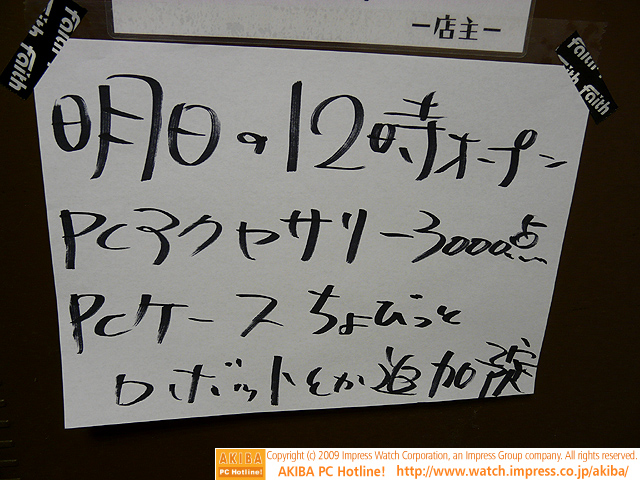 ー店主ー
faith
faith
faith
faith
明日の12時オープン
PCアクセサリー3000点
PCケース ちょびっと
ロボットとか追加
AKIBA
PC Hotline!
Copyright (c) 2009 Impress Watch Corporation, an Impress Group company. All rights reserved.
AKIBA PC Hotline! http://www.watch.impress.co.jp/akiba/